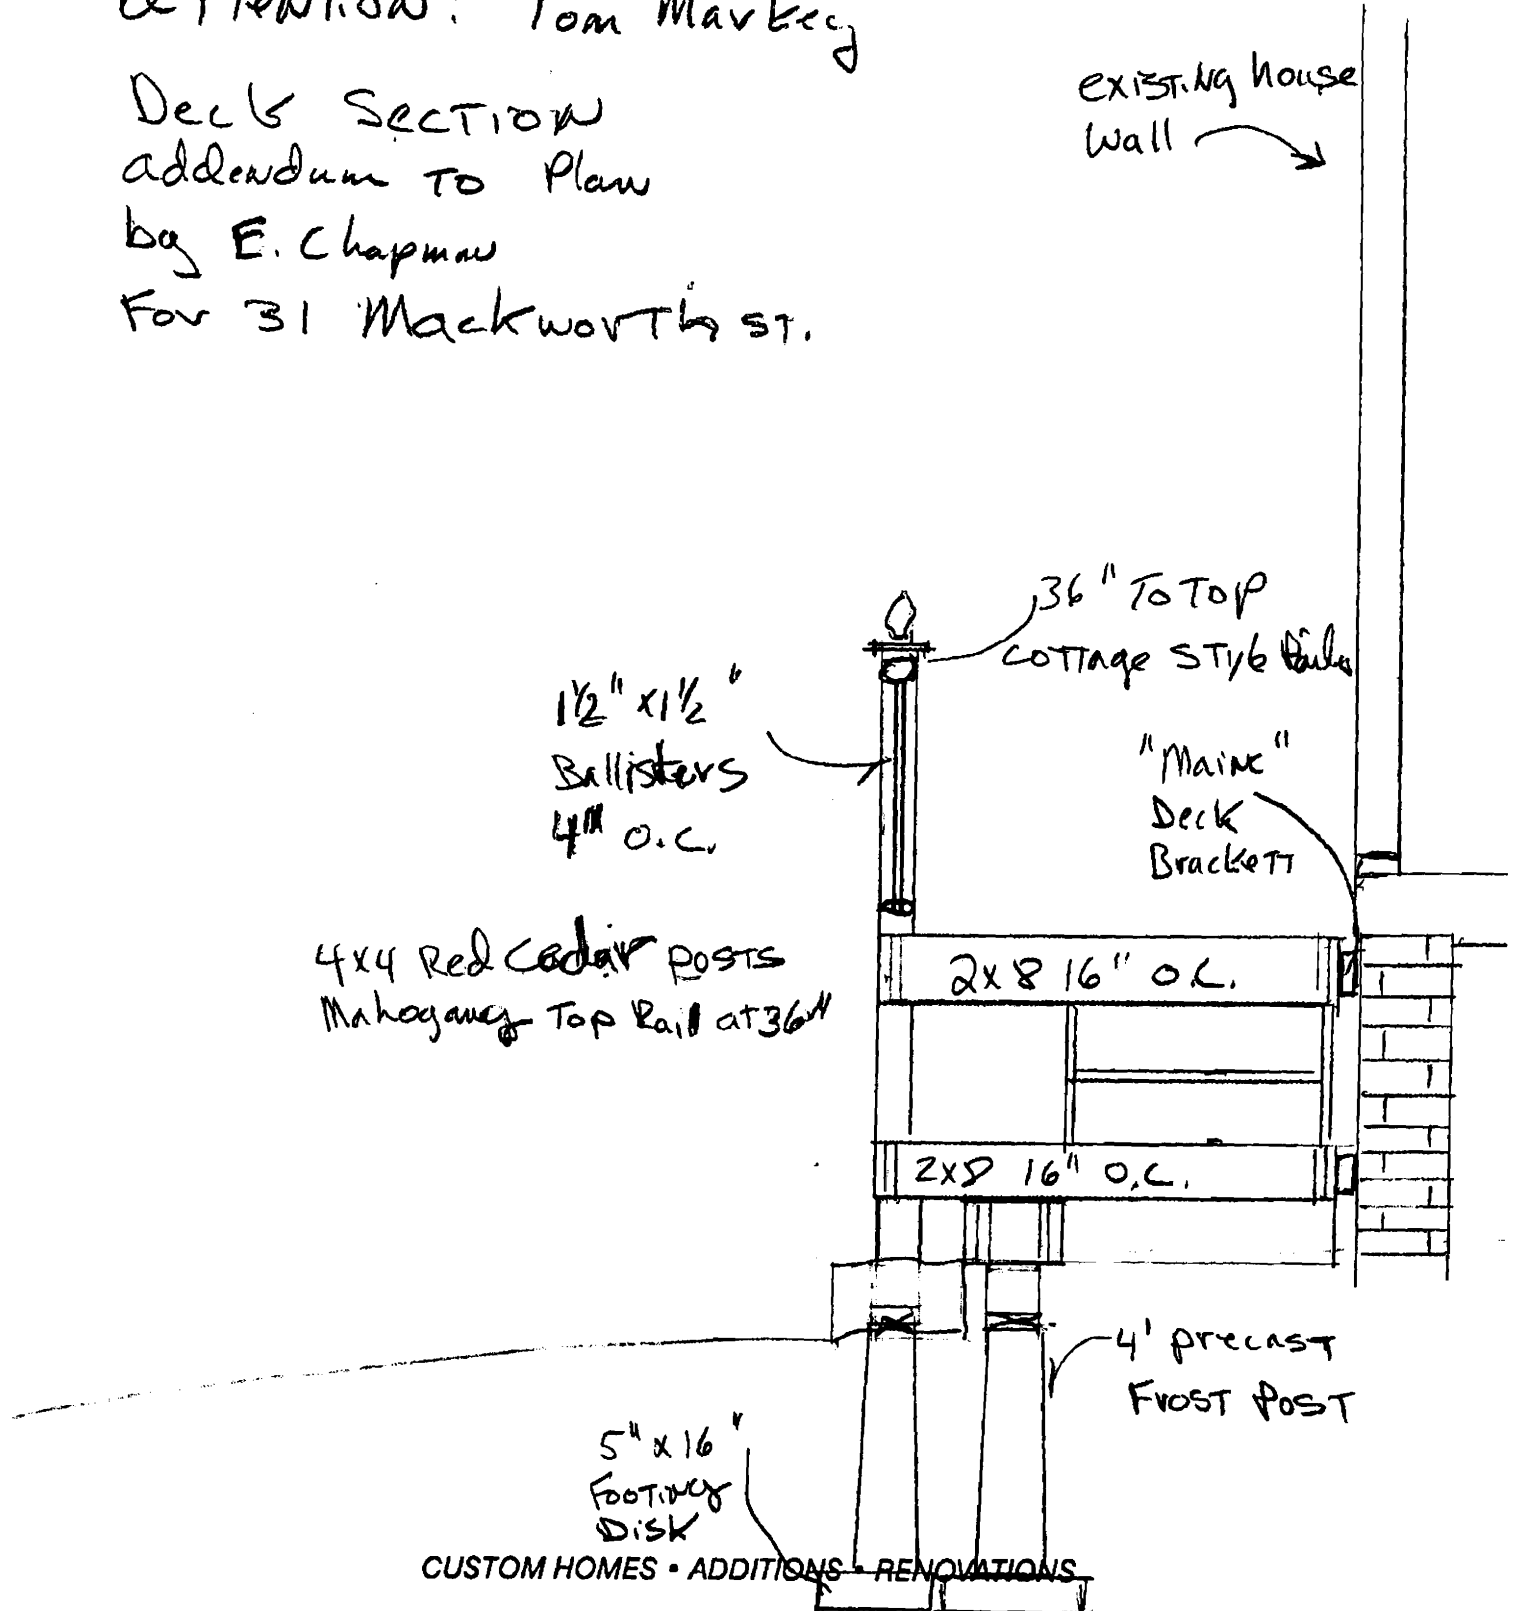 Attention: Tom Markey
Deck Section
addendum to Plan
by E. Chapman
For 31 Mackworth St.
existing house
wall
36" To Top
Cottage Style
1½" x 1½"
Ballisters
4" O.C.
"Maine"
Deck
Brackett
4x4 Red Cedar Posts
Mahogany Top Rail at 36"
2x8 16" O.C.
2x8 16" O.C.
4' precast
Frost Post
5" x 16"
Footing
Disk
CUSTOM HOMES • ADDITIONS • RENOVATIONS